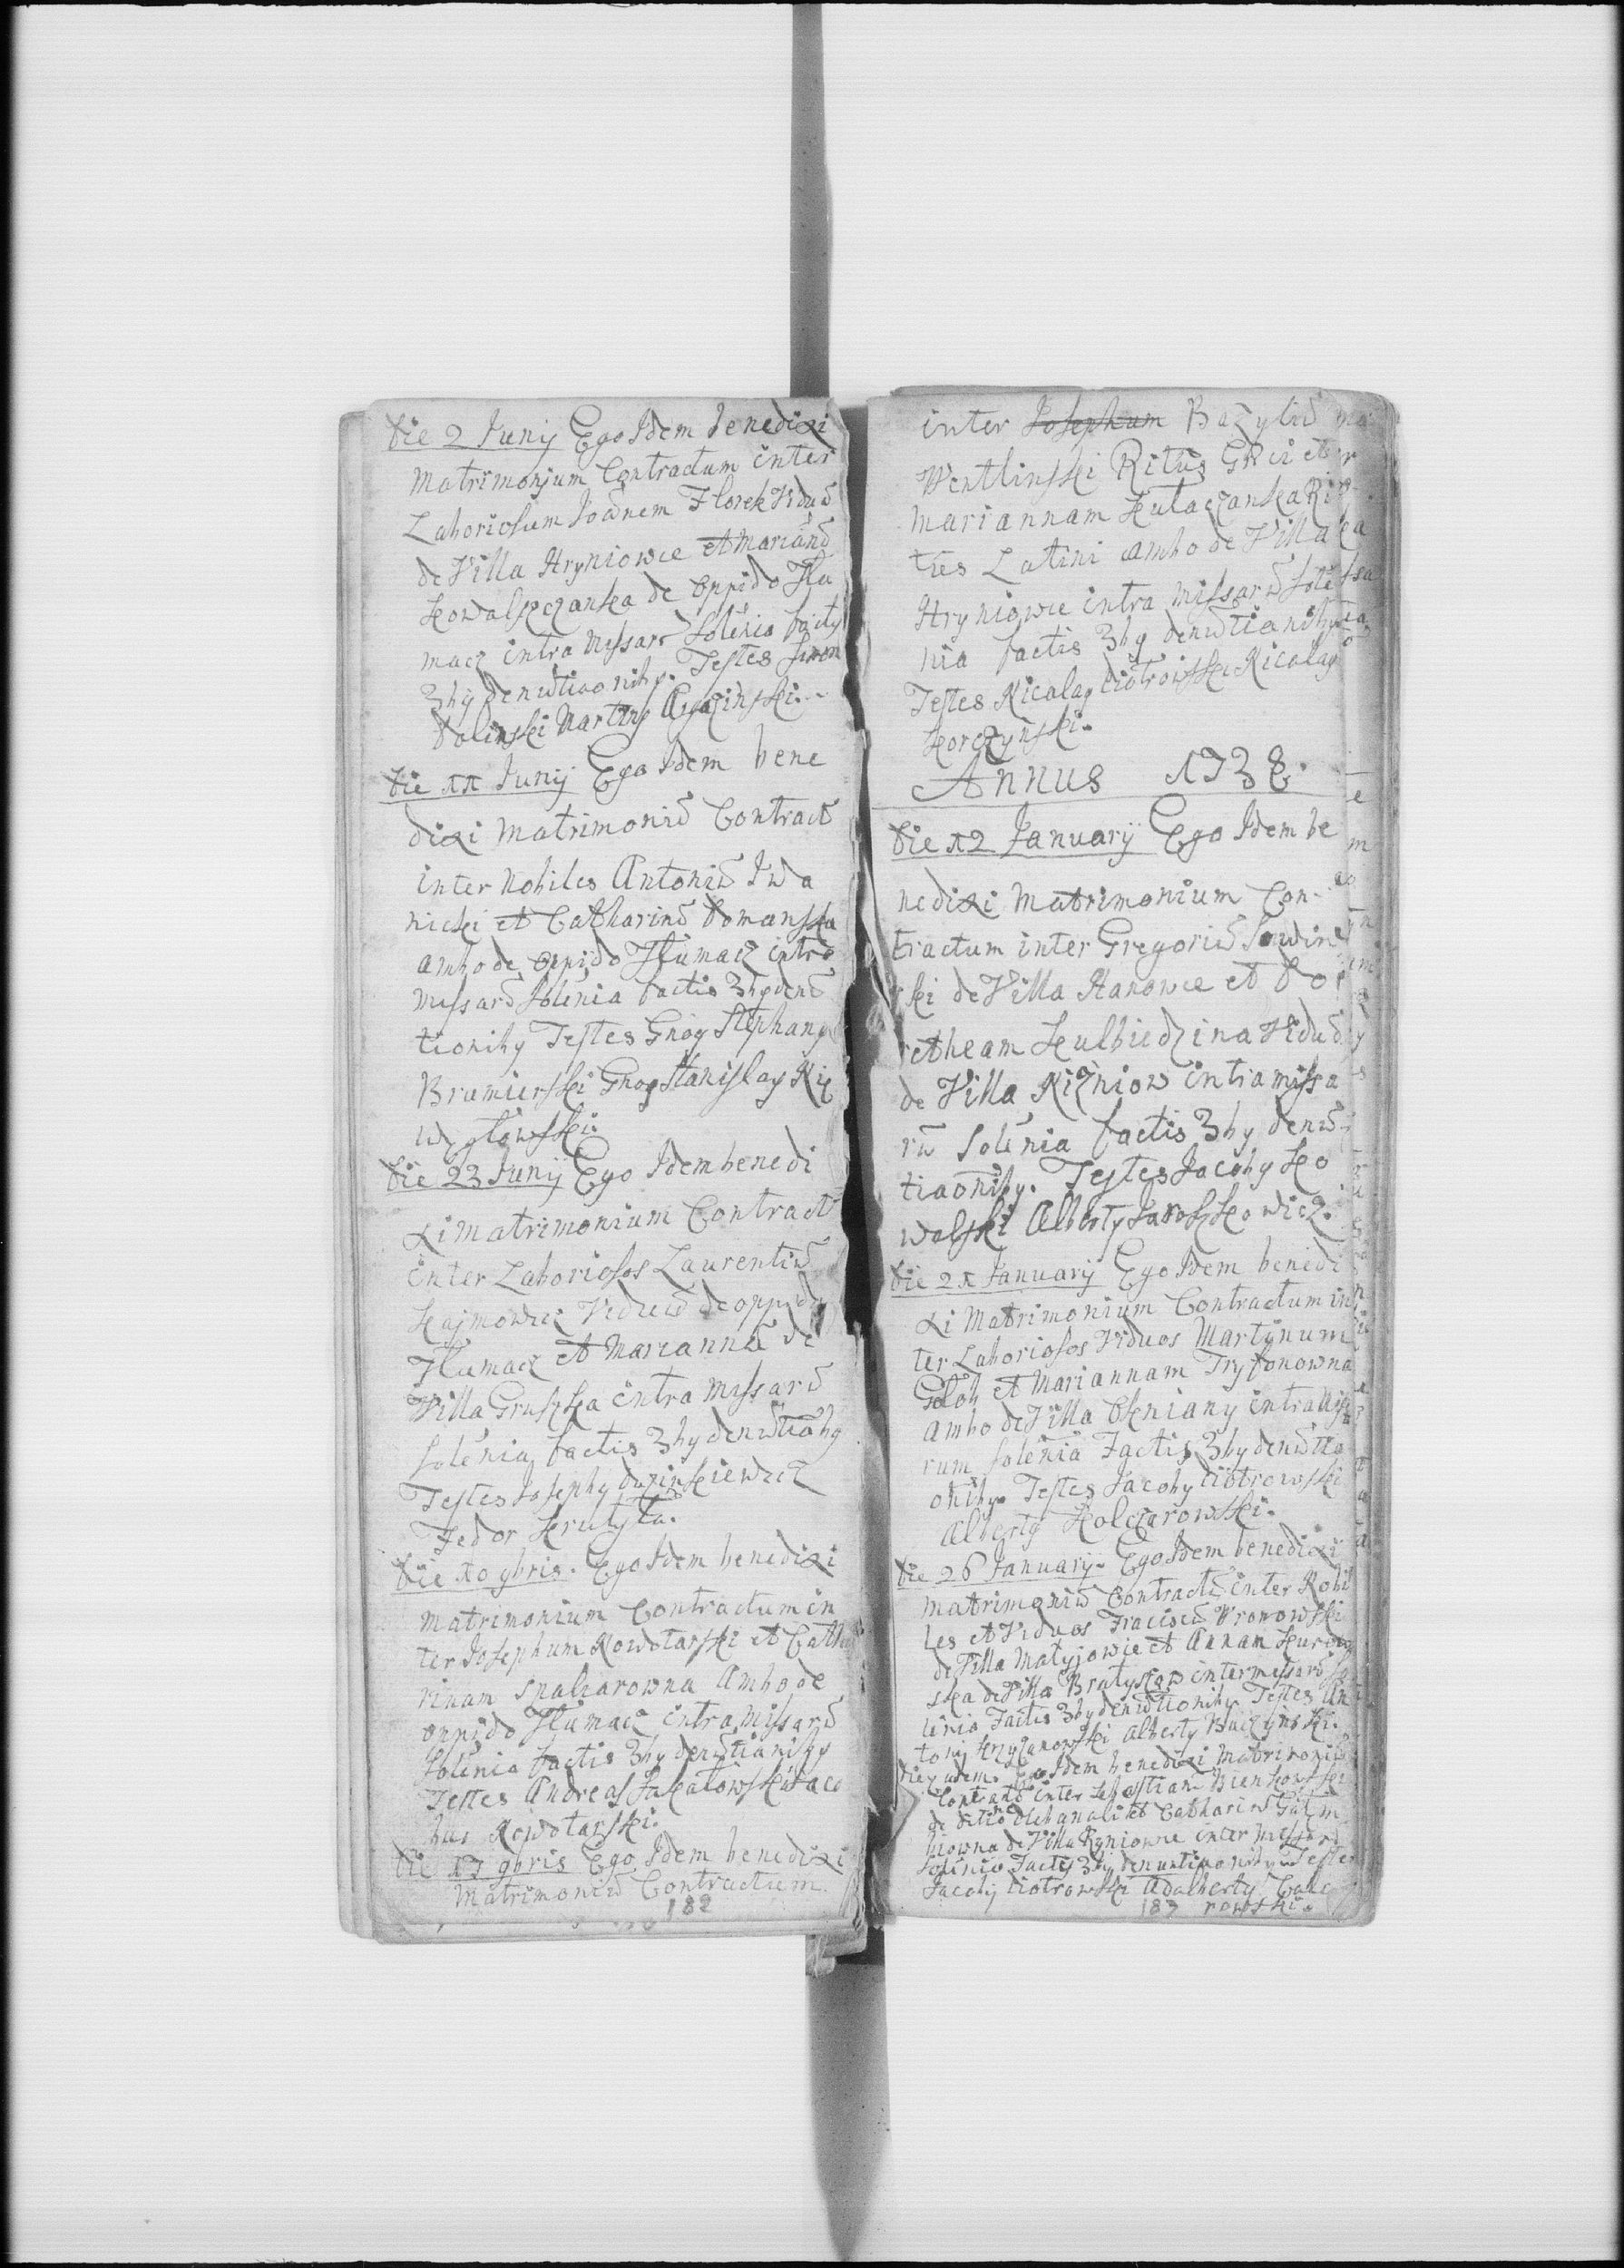 Die 2 Junij Ego Idem benedixi
Matrimonjum Contractum inter
Laboriosum Joānem Florek Viduū
de Villa Hryniowce et Mariānā
Kowalszczanka de Oppido Tłu
macz intra Missarū Solēnia factis
3bȳ denūtiaonibȳ. Testes Simon
Dolinski Martinȳ
Die 11 Junij Ego Idem bene
dixi Matrimoniū Contractū
inter Nobiles Antoniū Iwa
nicki et Catharinā Domanska
ambo de Oppido Tłumacz intra
Missarū Solēnia factis 3bȳ denū
tionibȳ Testes Gnōsȳ Stephanȳ
Bramierski Gnōsȳ Stanislaȳ Nie
wyglowski.
Die 23 Junij Ego Idem benedi
xi Matrimonium Contractū
inter Laboriosos Laurentiū
Kajmowicz Viduū de oppido
Tłumacz et Mariannā de
Villa Gruszka intra Missarū
Solēnia factis 3bȳ denūtiābȳ
Testes Josephȳ
Fedor
Die 10 9bris. Ego Idem benedixi
Matrimonium Contractum in
ter Josephum Nowotarski et Catha
rinam Spaliarowna Ambo de
oppido Tłumacz intra Missarū
Solēnia factis 3bȳ denūtiānibȳ
Testes Andreas Jaco
bus Nowotarski.
Die 17 9bris Ego Idem benedixi
Matrimoniū Contractum
182
inter Josephum Bazyliū
Wentlinski Ritus Grȩci et
Mariannam Kulaczanka Ri
tus Latini ambo de Villa
Hryniowce intra Missarū Solē
nia factis 3bȳ denūtianibȳ
Testes Nicolaȳ Piotrowski Nicolaȳ
Korczynski.
Annus 1738.
Die 12 Januarij Ego Idem be
nedixi Matrimonium Con-
tractum inter Gregoriū Sowin
ski de Villa Hanowce et Do
rotheam Kulbiedzina Viduā
de Villa Nizniow intra missa
rū Solēnia factis 3bȳ denū
tiaonibȳ. Testes Jacobȳ Ko
walski Albertȳ Jaroszkowicz.
Die 21 Januarij Ego Idem benedi
xi Matrimonium Contractum in
ter Laboriosos Viduos Martinum
Gołob et Mariannam Tryfonowna
ambo de Villa Okniany intra Missa
rum solēnia Factis 3bȳ denūtia
onibȳ. Testes Jacobȳ Piotrowski
Albertȳ Kolczarowski.
Die 26 Januarij. Ego Idem benedixi
Matrimoniū Contractū inter Nobi
les et Viduos Franciscū Wronowski
de Villa Matyjowce et Annam
ska de Villa Bratyszow inter missarū So
lēnia Factis 3bȳ denūtionibȳ Testes An
tonij Krzyżanowski Albertȳ Buczynski.
Die eadem. Ego Idem benedixi Matrimoniū
Contractū inter Sebastian Bienkowski
de Plebanali et Catharinā
de Villa Ryniowce inter Missarū
Solēnia Factis 3bȳ denuntiaonibȳ Testes
Jacobȳ Piotrowski Adalbertȳ
183 rowski.